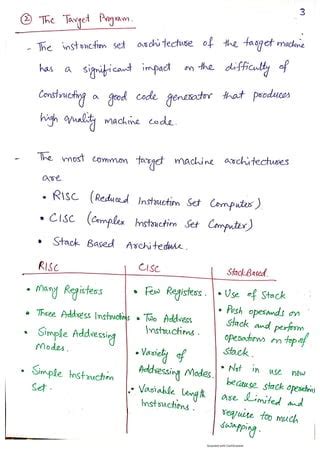 3
② The Target Program.
- The instruction set architecture of the target machine
has a significant impact on the difficulty of
Constructing a good code generator that produces
high quality machine code.
- The most common target machine architectures
are
• RISC (Reduced Instruction Set Computer)
• CISC (Complex Instruction Set Computer)
• Stack Based Architecture.
RISC
• Many Registers
• Three Address Instructions
• Simple Addressing
Modes.
• Simple Instruction
Set.
CISC
• Few Registers.
• Two Address
Instructions.
• Variety of
Addressing Modes.
• Variable Length
Instructions.
Stack Based
• Use of Stack
• Push operands on
stack and perform
operations on top of
stack.
• Not in use now
because stack operations
are limited and
require too much
swapping.
Scanned with CamScanner